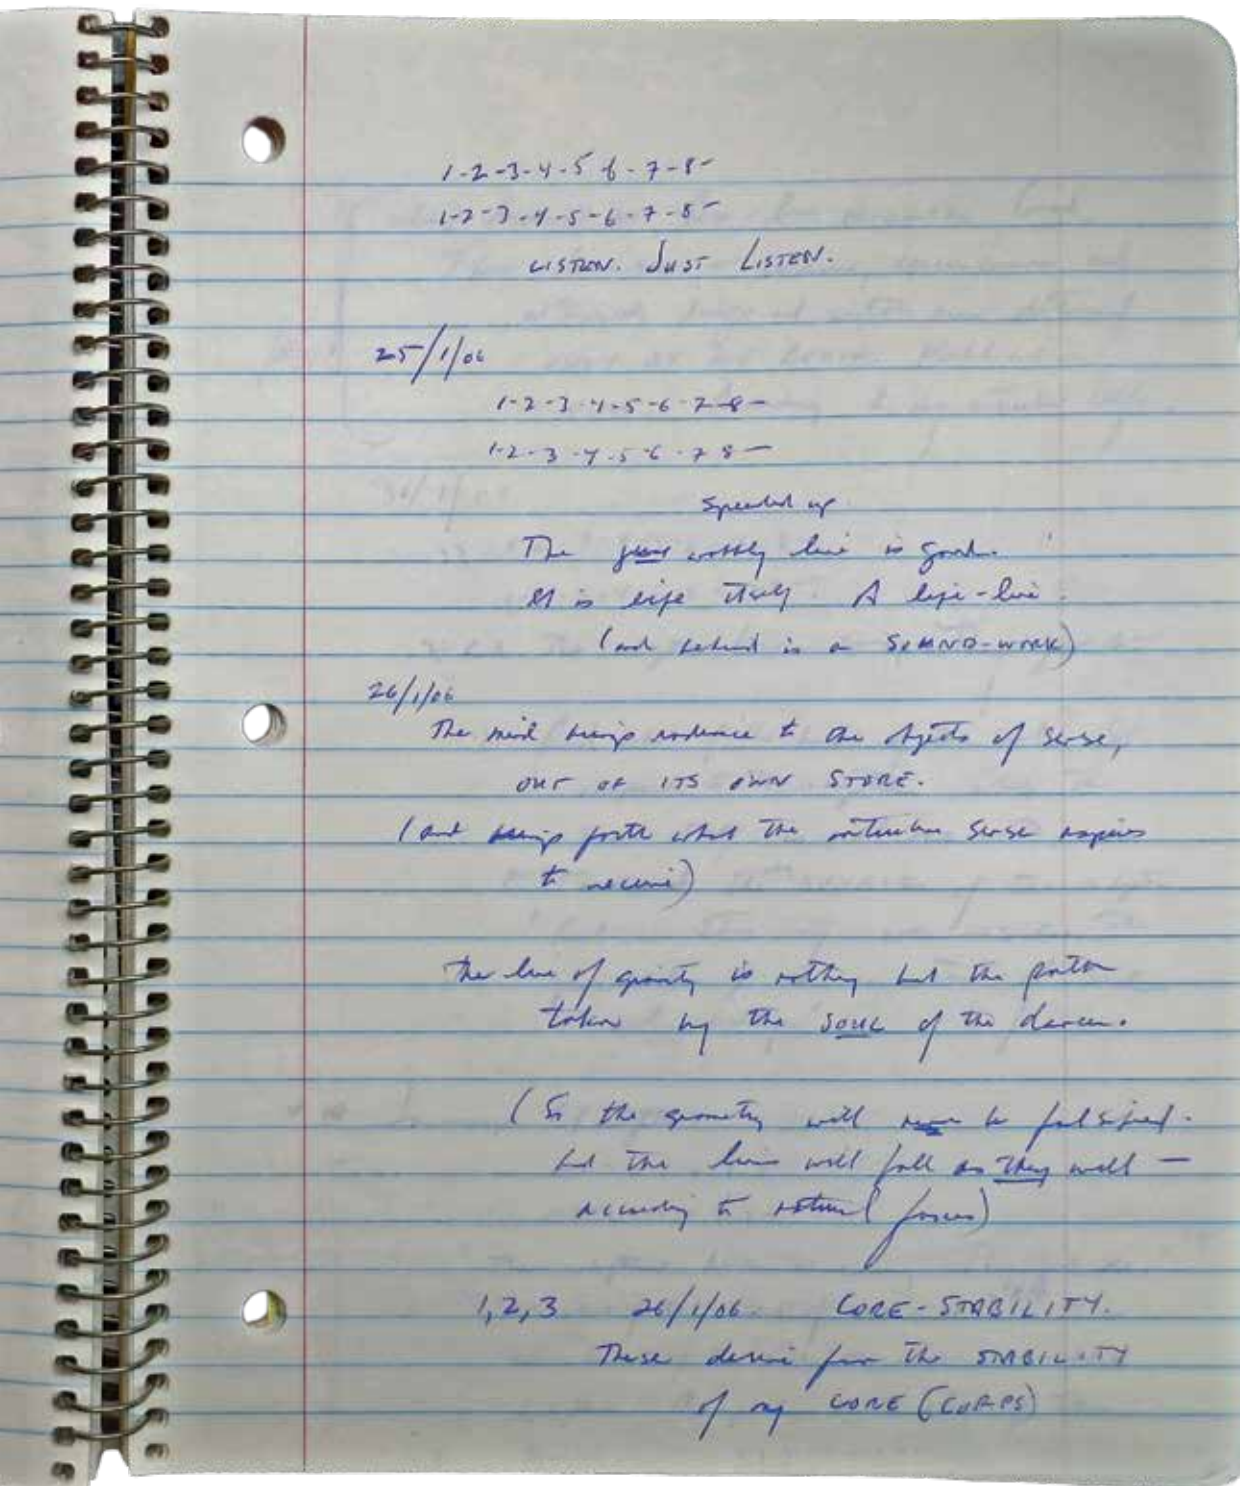 1-2-3-4-5 6-7-8-
1-2-3-4-5-6-7-8-
LISTEN. JUST LISTEN.
25/1/06
1-2-3-4-5-6-7-8-
1-2-3-4-5-6-7 8-
Speeded up
The wobbly line is good.
It is life itself. A life-line.
(and behind is a SOUND-WORK)
26/1/06
The mind brings radiance to the objects of sense,
OUT OF ITS OWN STORE.
(and brings forth what the particular sense aspires
to receive)
The line of gravity is nothing but the path
taken by the SOUL of the dancer.
(So the geometry will be falsified.
but the lines will fall as they will —
according to natural forces)
1,2,3 26/1/06. CORE-STABILITY.
These derive from the STABILITY
of my CORE (CORPS)